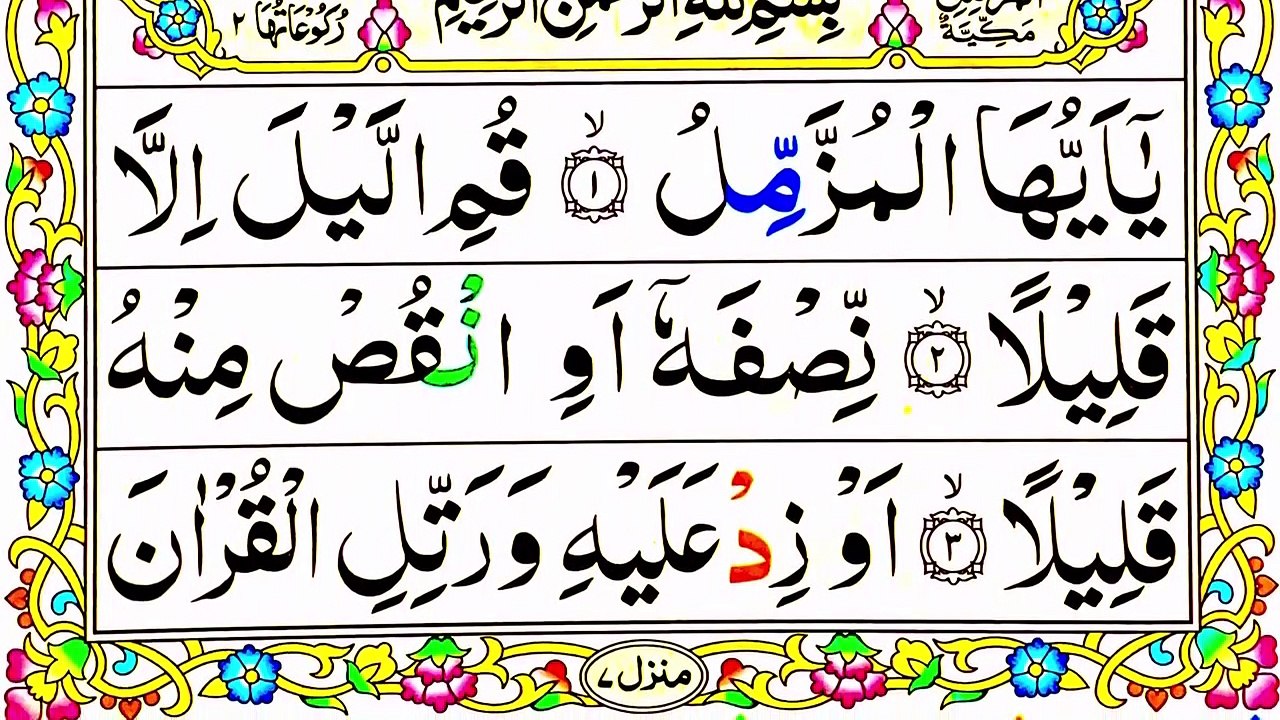 رُكُوْعَاتُهَا ٢
بِسْمِ اللّٰهِ الرَّحْمٰنِ الرَّحِيْمِ
مَكِّيَّةٌ
يٰۤاَيُّهَا الْمُزَّمِّلُ ۙ‏﴿۱﴾ قُمِ الَّيْلَ اِلَّا
قَلِيْلًا ۙ‏﴿۲﴾ نِّصْفَهٗۤ اَوِ انْقُصْ مِنْهُ
قَلِيْلًا ۙ‏﴿۳﴾ اَوْ زِدْ عَلَيْهِ وَرَتِّلِ الْقُرْاٰنَ
منزل ۷